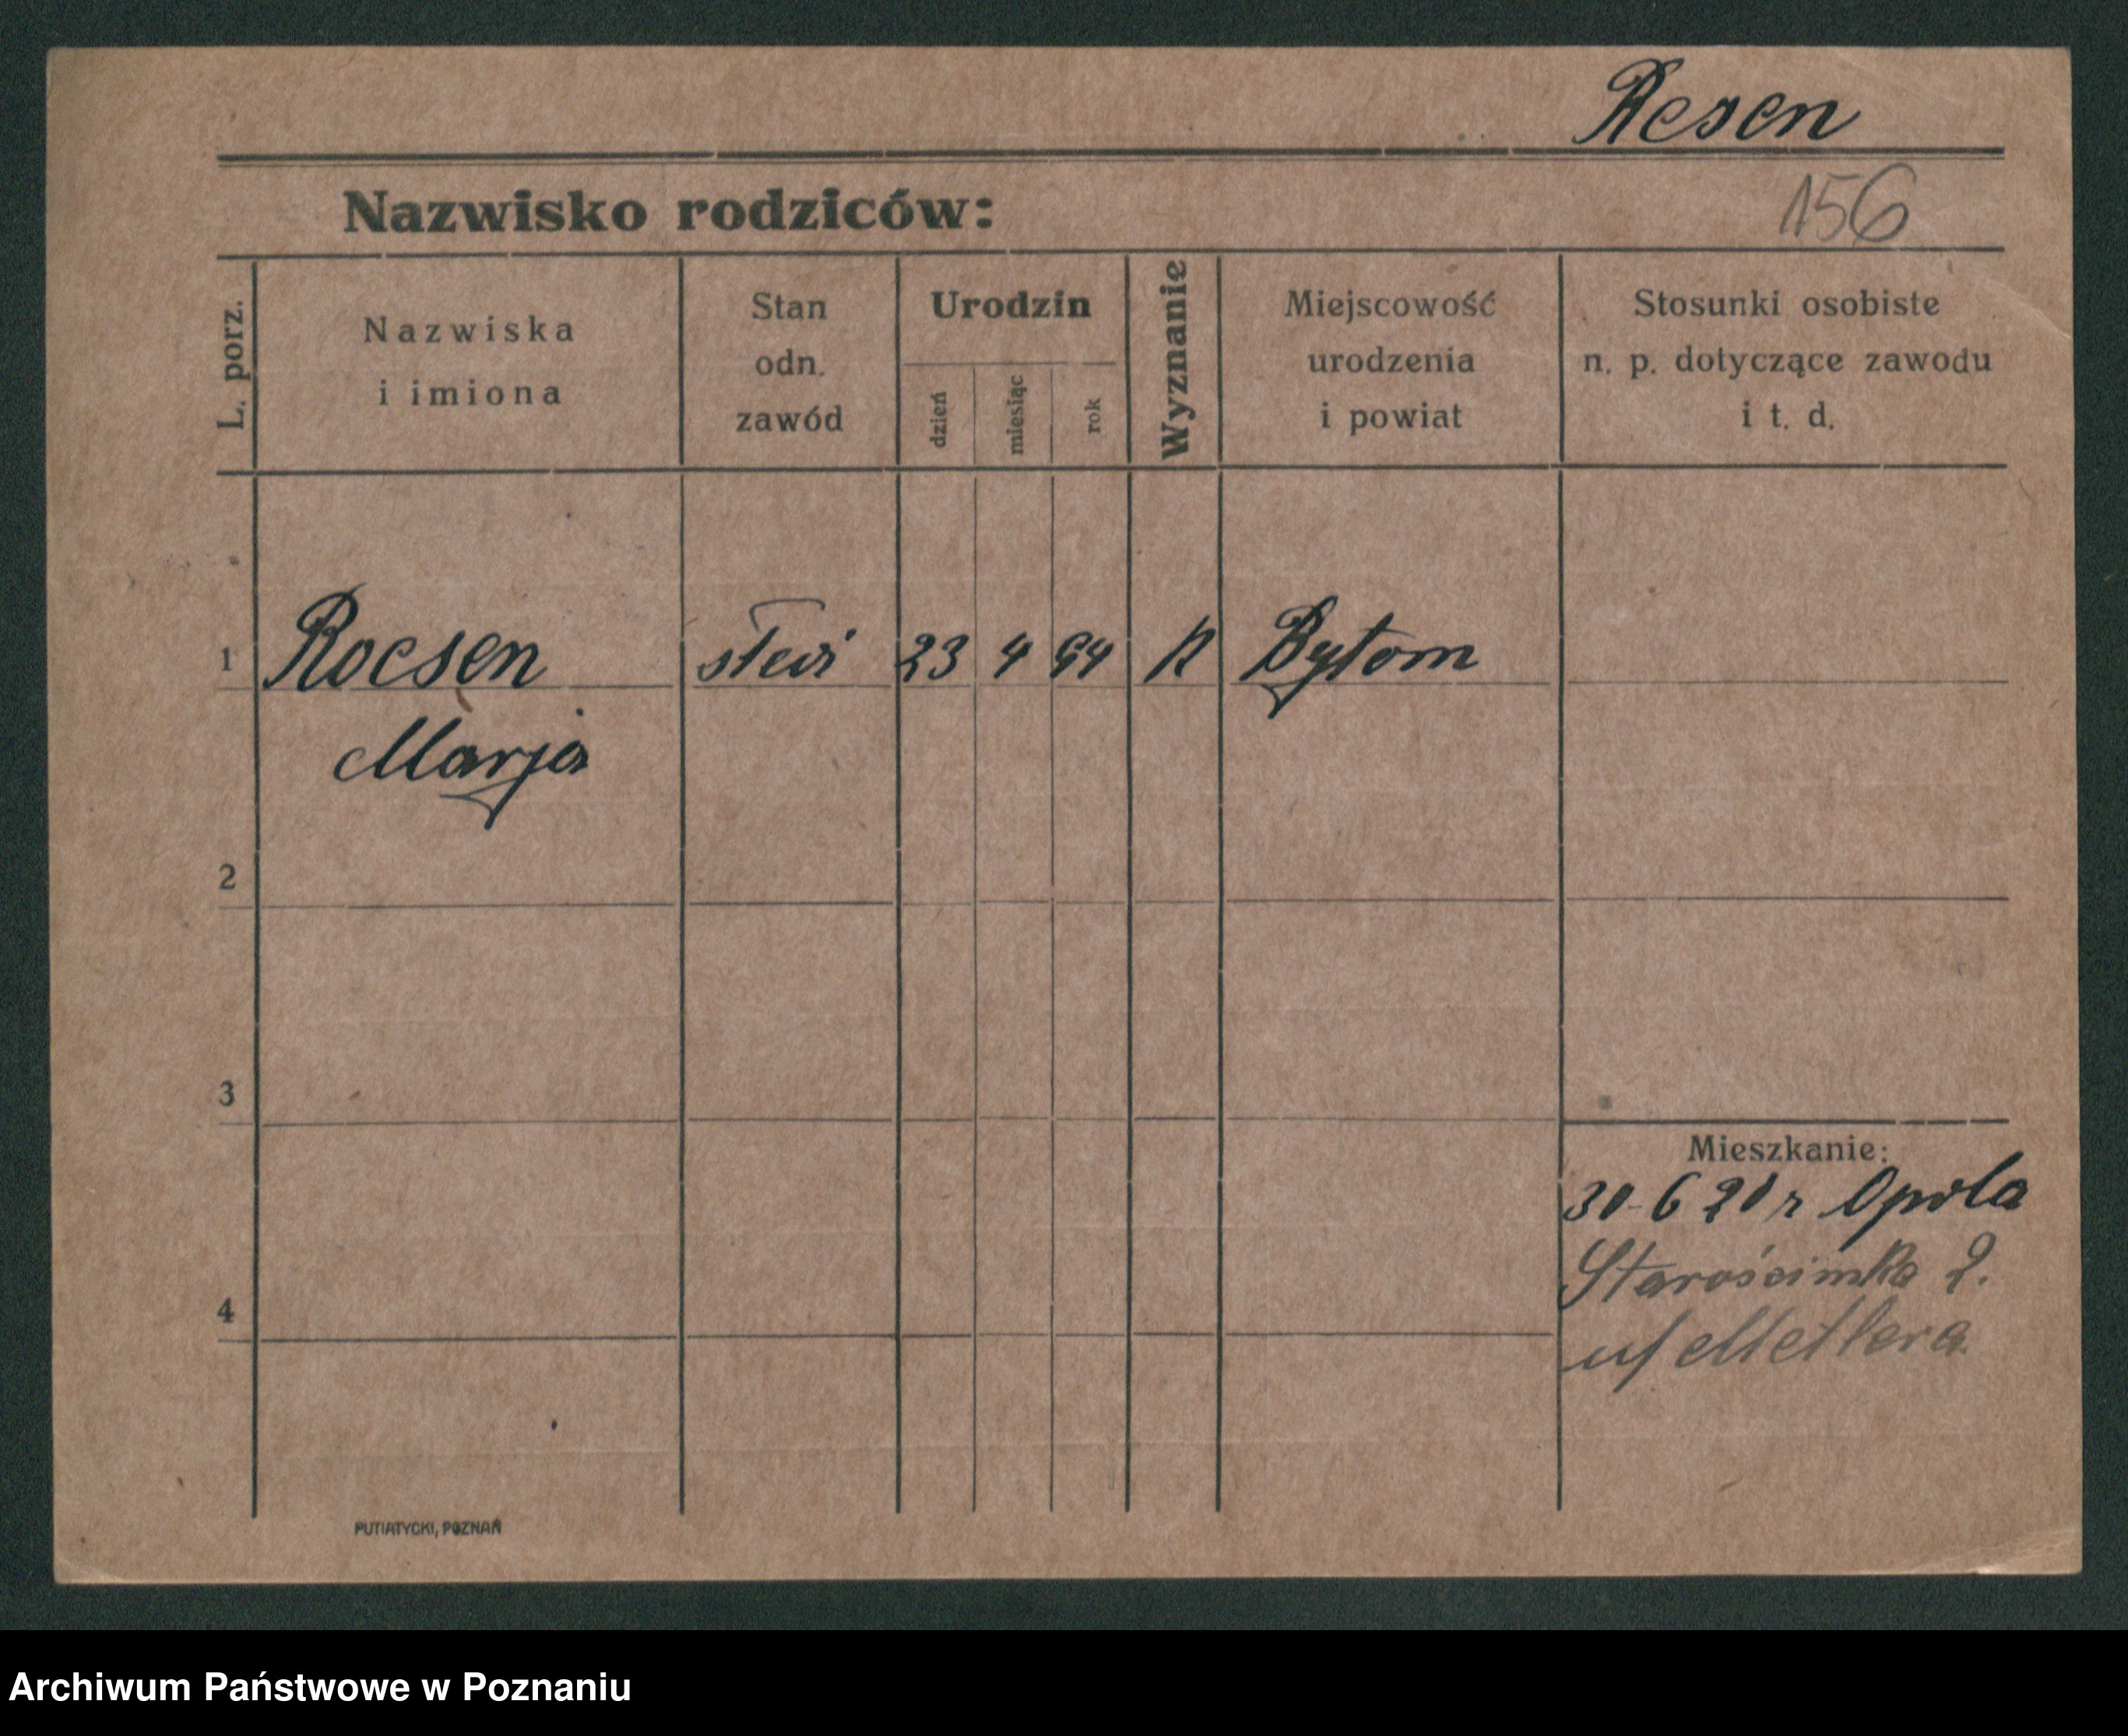 Resen
Nazwisko rodziców:
156
L. porz.
Nazwiska
i imiona
Stan
odn.
zawód
Urodzin
dzień
miesiąc
rok
Wyznanie
Miejscowość
urodzenia
i powiat
Stosunki osobiste
n. p. dotyczące zawodu
i t. d.
1 Roesen 23 4 94 K Bytom
Marja
2
3
Mieszkanie:
30-6 20 r Opola
2.
4
u/ Metlera
PUTIATYCKI, POZNAŃ
Archiwum Państwowe w Poznaniu